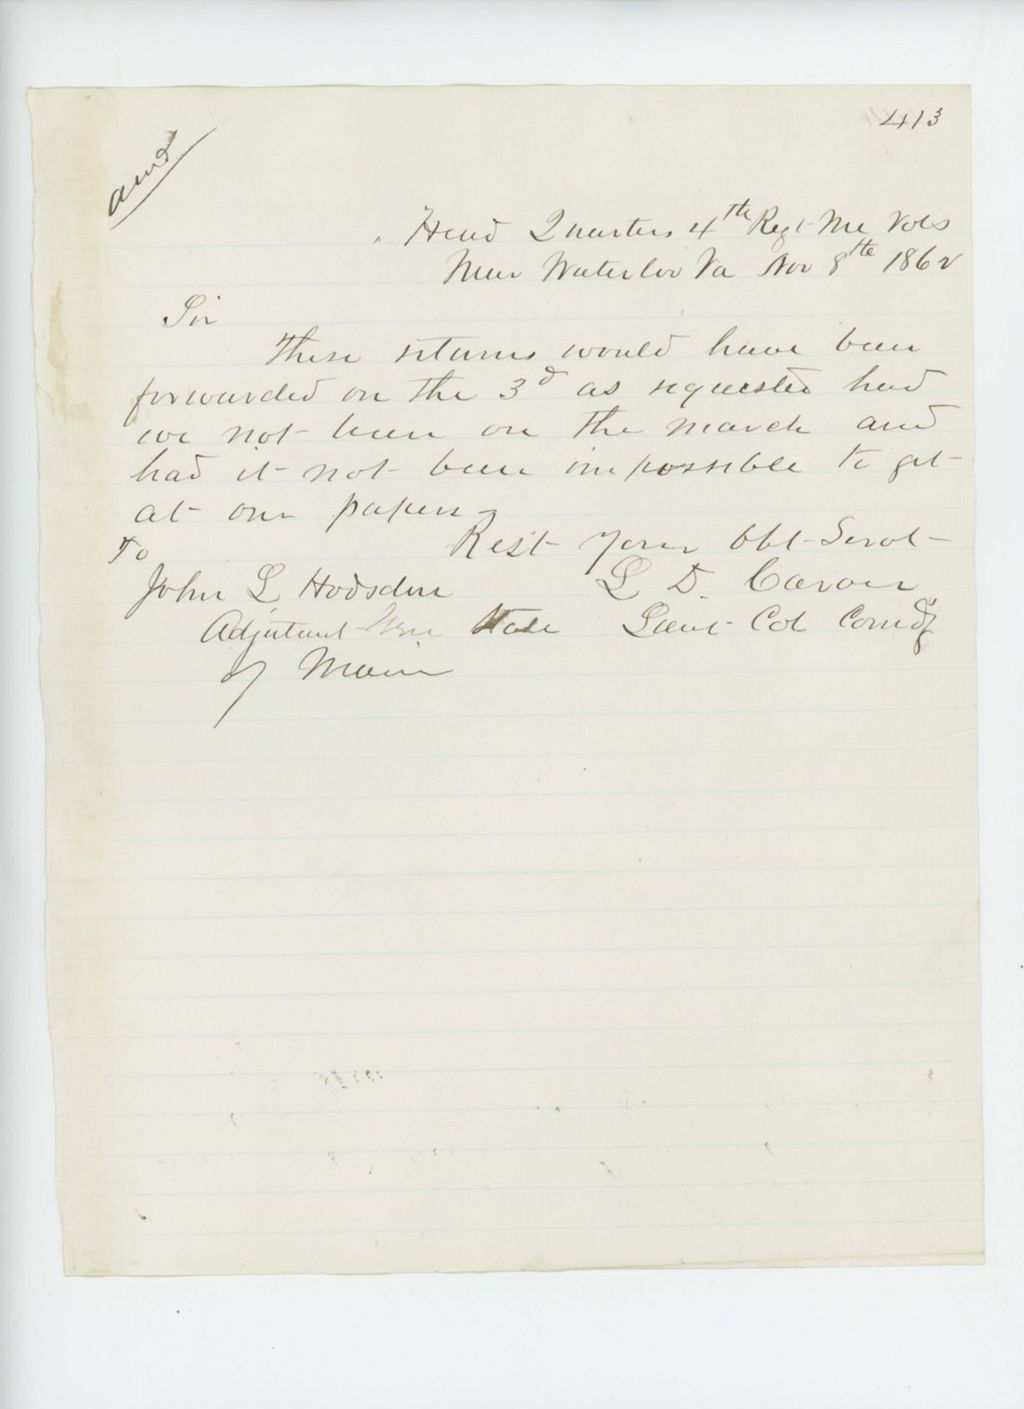 413
and
Head Quarters 4th Regt Me Vols
Near Waterloo Va Nov 8th 1862
Sir
These returns would have been
forwarded on the 3d as requested had
we not been on the march and
had it not been impossible to get
at our papers
Rest Your Obt Servt
To
John L Hodsdon
L D. Carver
Adjutant Gen State
Lieut Col Comdg
of Maine